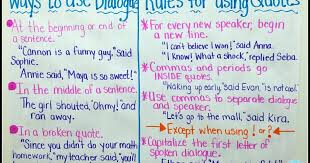 Ways to use Dialogue
At the beginning or end of
a sentence.
"Cannon is a funny guy," said
Sophie.
Annie said, "Maya is so sweet!"
In the middle of a sentence.
The girl shouted, "Ohmy!" and
ran away.
In a broken quote.
"Since you didn't do your math
homework," my teacher said, "you'll
Rules for using Quotes
For every new speaker, begin
a new line.
"I can't believe I won!" said Anna.
"I know! What a shock," replied Seba.
Commas and periods go
INSIDE quotes.
"Waking up early," said Evan, "is not cool."
Use commas to separate dialogue
and speaker.
"Let's go to the mall," said Kira.
Except when using ! or ?
Capitalize the first letter of
spoken dialogue.